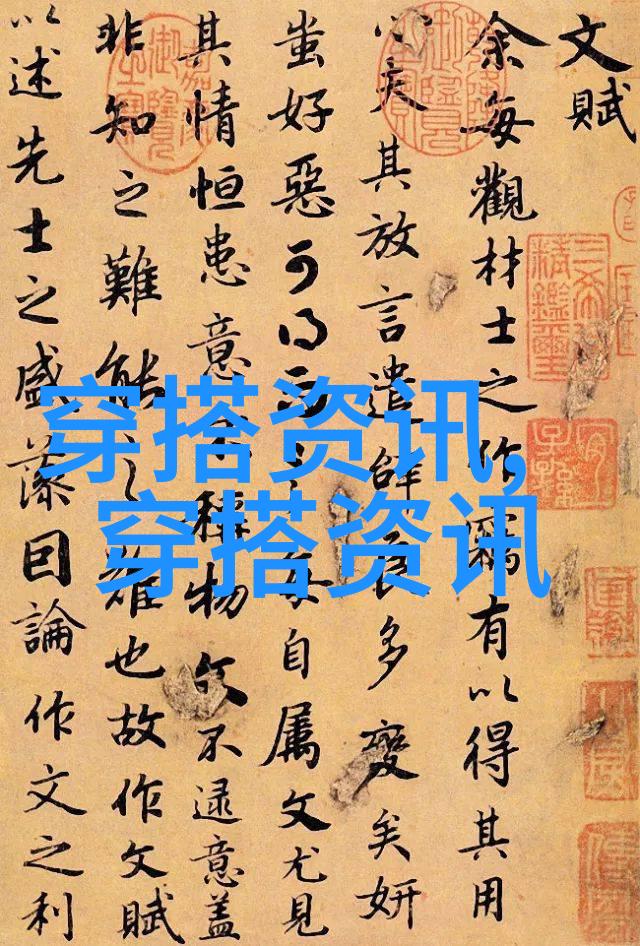 文賦
余每觀材士之作竊有以得其用
心夫其放言遣辭良多變矣妍
蚩好惡可得而言每自属文尤見
其情恒患意不稱物文不逮意盖
非知之難能之難也故作文賦
以述先士之盛藻因論作文之利
穿搭资讯,
穿搭资讯
三希堂
精鑑璽
宜
子孫